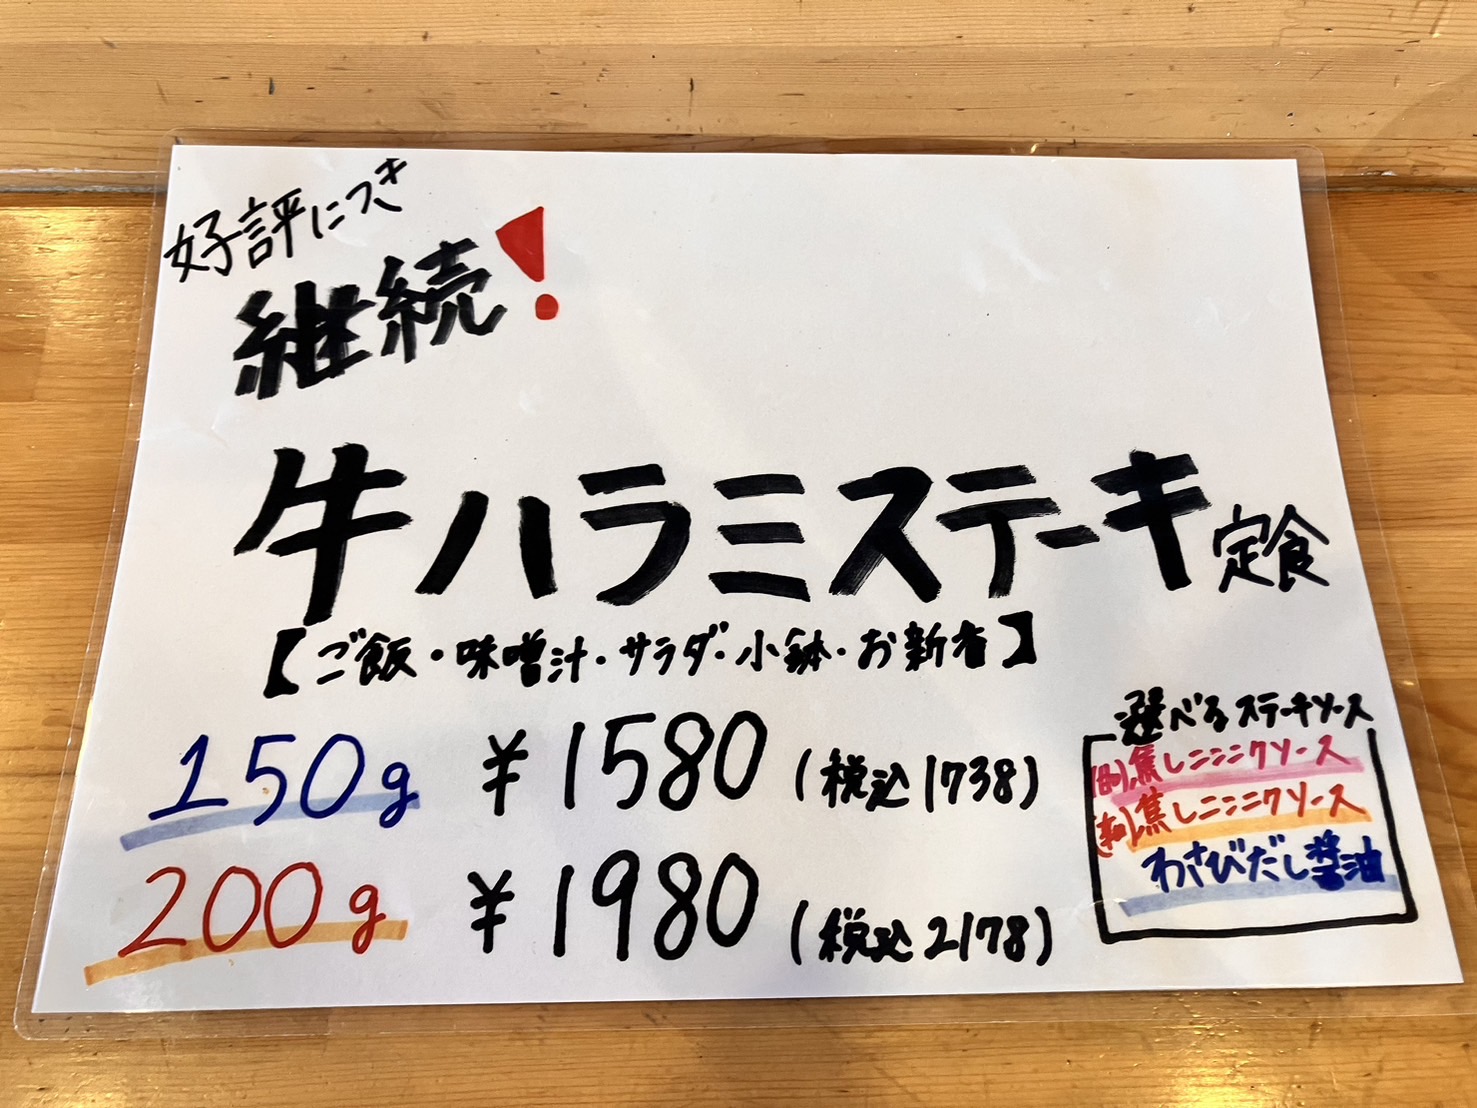 好評につき
継続!
牛ハラミステーキ定食
【ご飯・味噌汁・サラダ・小鉢・お新香】
150g ¥1580 (税込1738)
200g ¥1980 (税込2178)
選べるステーキソース
焦しニンニクソース
焦しニンニクソース
わさびだし醤油